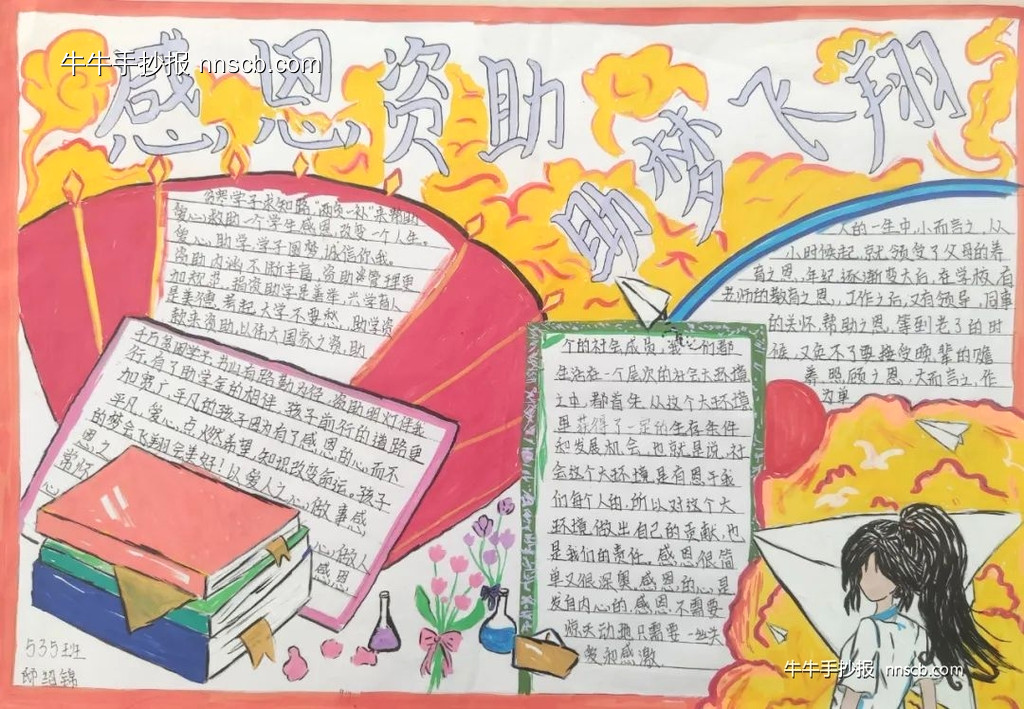 牛牛手抄报 nnscb.com
感恩资助
助梦飞翔
贫寒学子求知路"两免一补"来帮助
爱心救助一个学生感恩,改变一个人生。
爱心助学,学子圆梦,诚信你我。
资助内涵不断丰富,资助管理更
加规范,捐资助学是善举,兴学育人
是美德,若起大学不要愁,助学资
献来资助,以伟大国家之强,助
千万名困学子,书山有路勤为径,资助明灯伴我
行,有了助学金的相伴,孩子前行的道路更
加宽广,平凡的孩子因为有了感恩的心而不
平凡,爱心点燃希望,知识改变命运,孩子
的梦会飞翔完美好!以爱人之心做事感
恩之
心做人
常怀
感恩
心
人的一生中,小而言之,从
小时候起,就领受了父母的养
育之恩,年纪逐渐变大后,在学校,有
老师的教育之恩,工作之后,又有领导、同事
的关怀、帮助之恩,等到老了的时
候,又免不了要接受晚辈的赡
养、照顾之恩,大而言之,作
为单
个的社会成员,我们都
生活在一个层次的社会大环境
之中,都首先从这个大环境
里获得了一定的生存条件
和发展机会,也就是说,社
会这个大环境是有恩于我
们每个人的,所以对这个大
环境做出自己的贡献,也
是我们的责任。感恩很简
单又很深奥,感恩的心是
发自内心的,感恩不需要
惊天动地,只需要一些关
爱和感激
535班
牛牛手抄报 nnscb.com